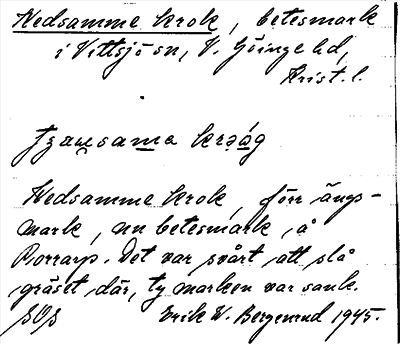 Vedsamme krok, betesmark
i Vittsjö sn, V. Göinge hd,
Krist. l.
krok
Vedsamme krok, förr ängs-
mark, nu betesmark, å
Porrarp. Det var svårt att slå
gräset där, ty marken var sank.
SOS Erik W. Bergenrud 1945.